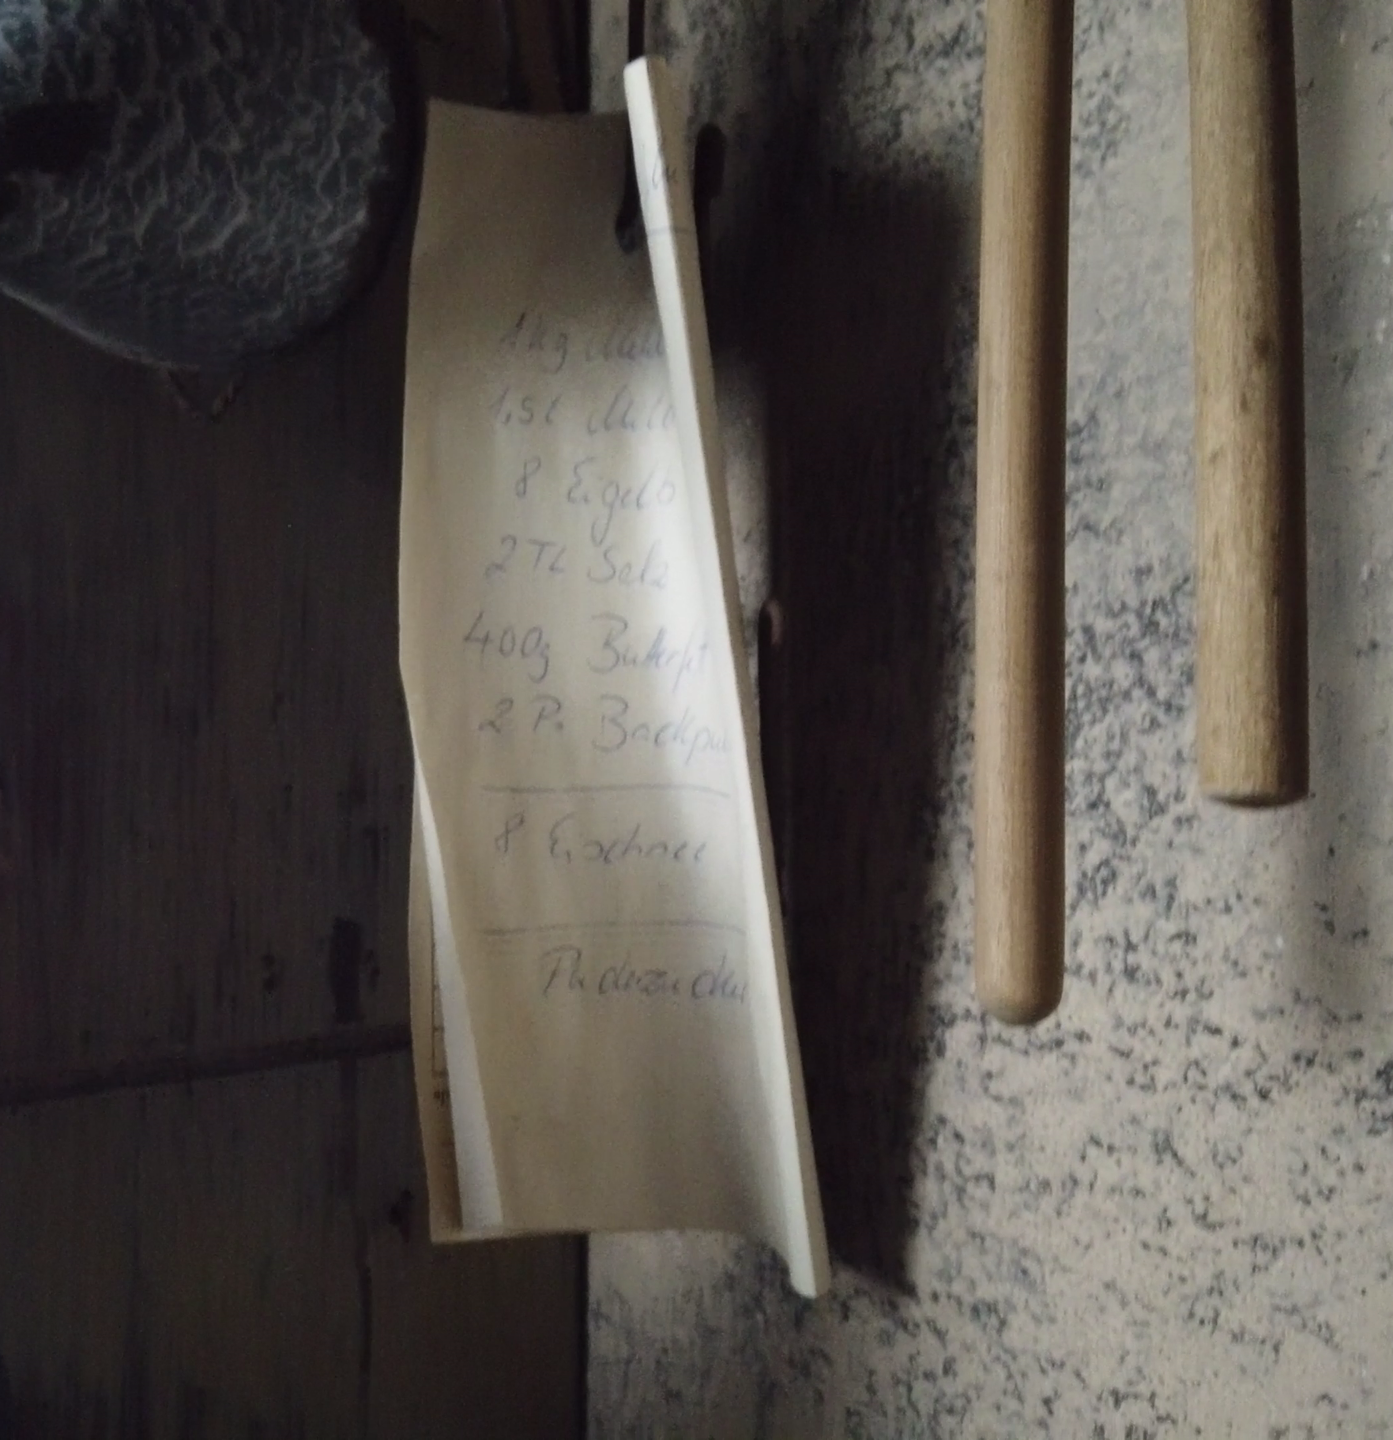 1kg Mehl
1,5l Milch
8 Eigelb
2 TL Salz
400g Butterfett
2 P. Backpul
8 Eischnee
Puderzucker